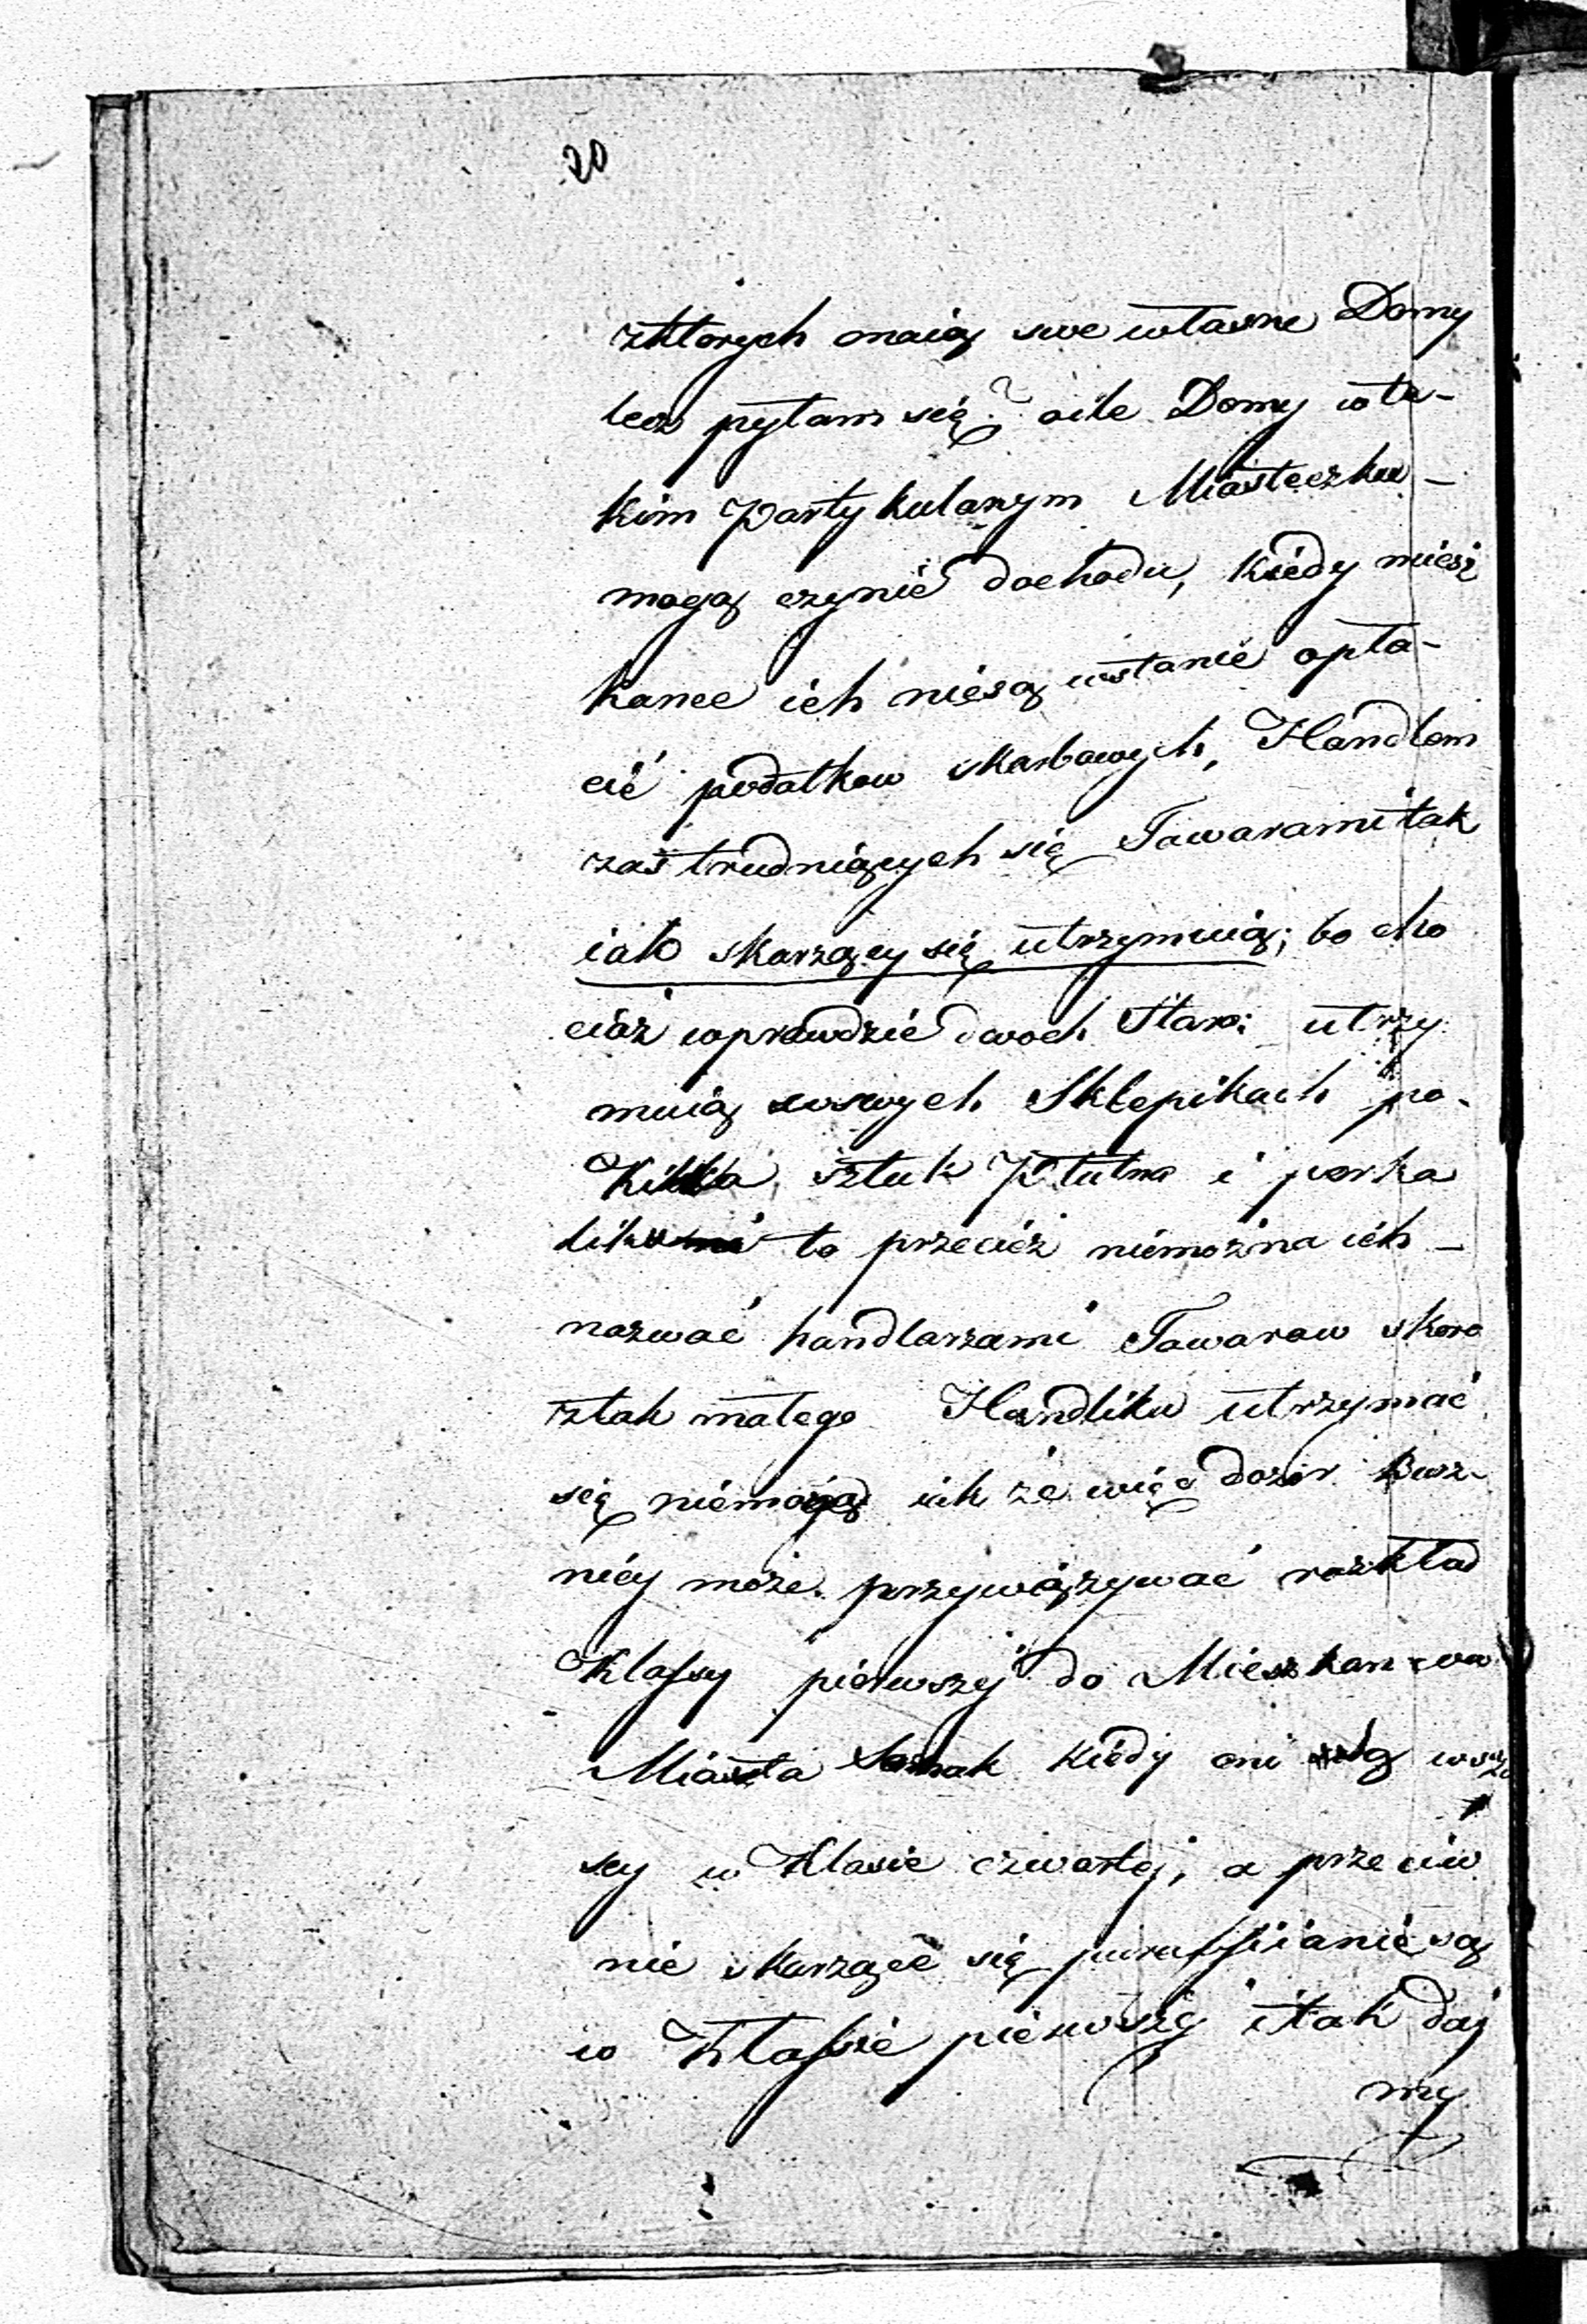 20
zktorych maią swe własne Domy
lecz pytam się? oile Domy wta-
kim Partykularnym Miasteczku -
mogą czynić dochodu, kiedy miesz
kance ich niesą wstanie opła-
cić podatkow skarbowych, Handlem
zaś trudniących się Towarami tak
iako skarzący się utrzymuią; bo cho
ciaż wprawdzie dwoch Staro: utrzy
muią wswych Sklepikach po-
Kilka sztuk Płutna i perka
liku to przecież niemożna ich -
nazwać handlarzami Towarow skoro
ztak małego Handliku utrzymać
się niemogą iak że więc dozor Buz-
nicy może przywiązywać rozkład
Klassy pierwszej do Mieszkancow
Miasta Sarnak kiedy oni są wszy
scy w Klasie czwartej, a przeciw
nie skarzące się parafiianie są
w Klassie pierwszej i tak daj
my